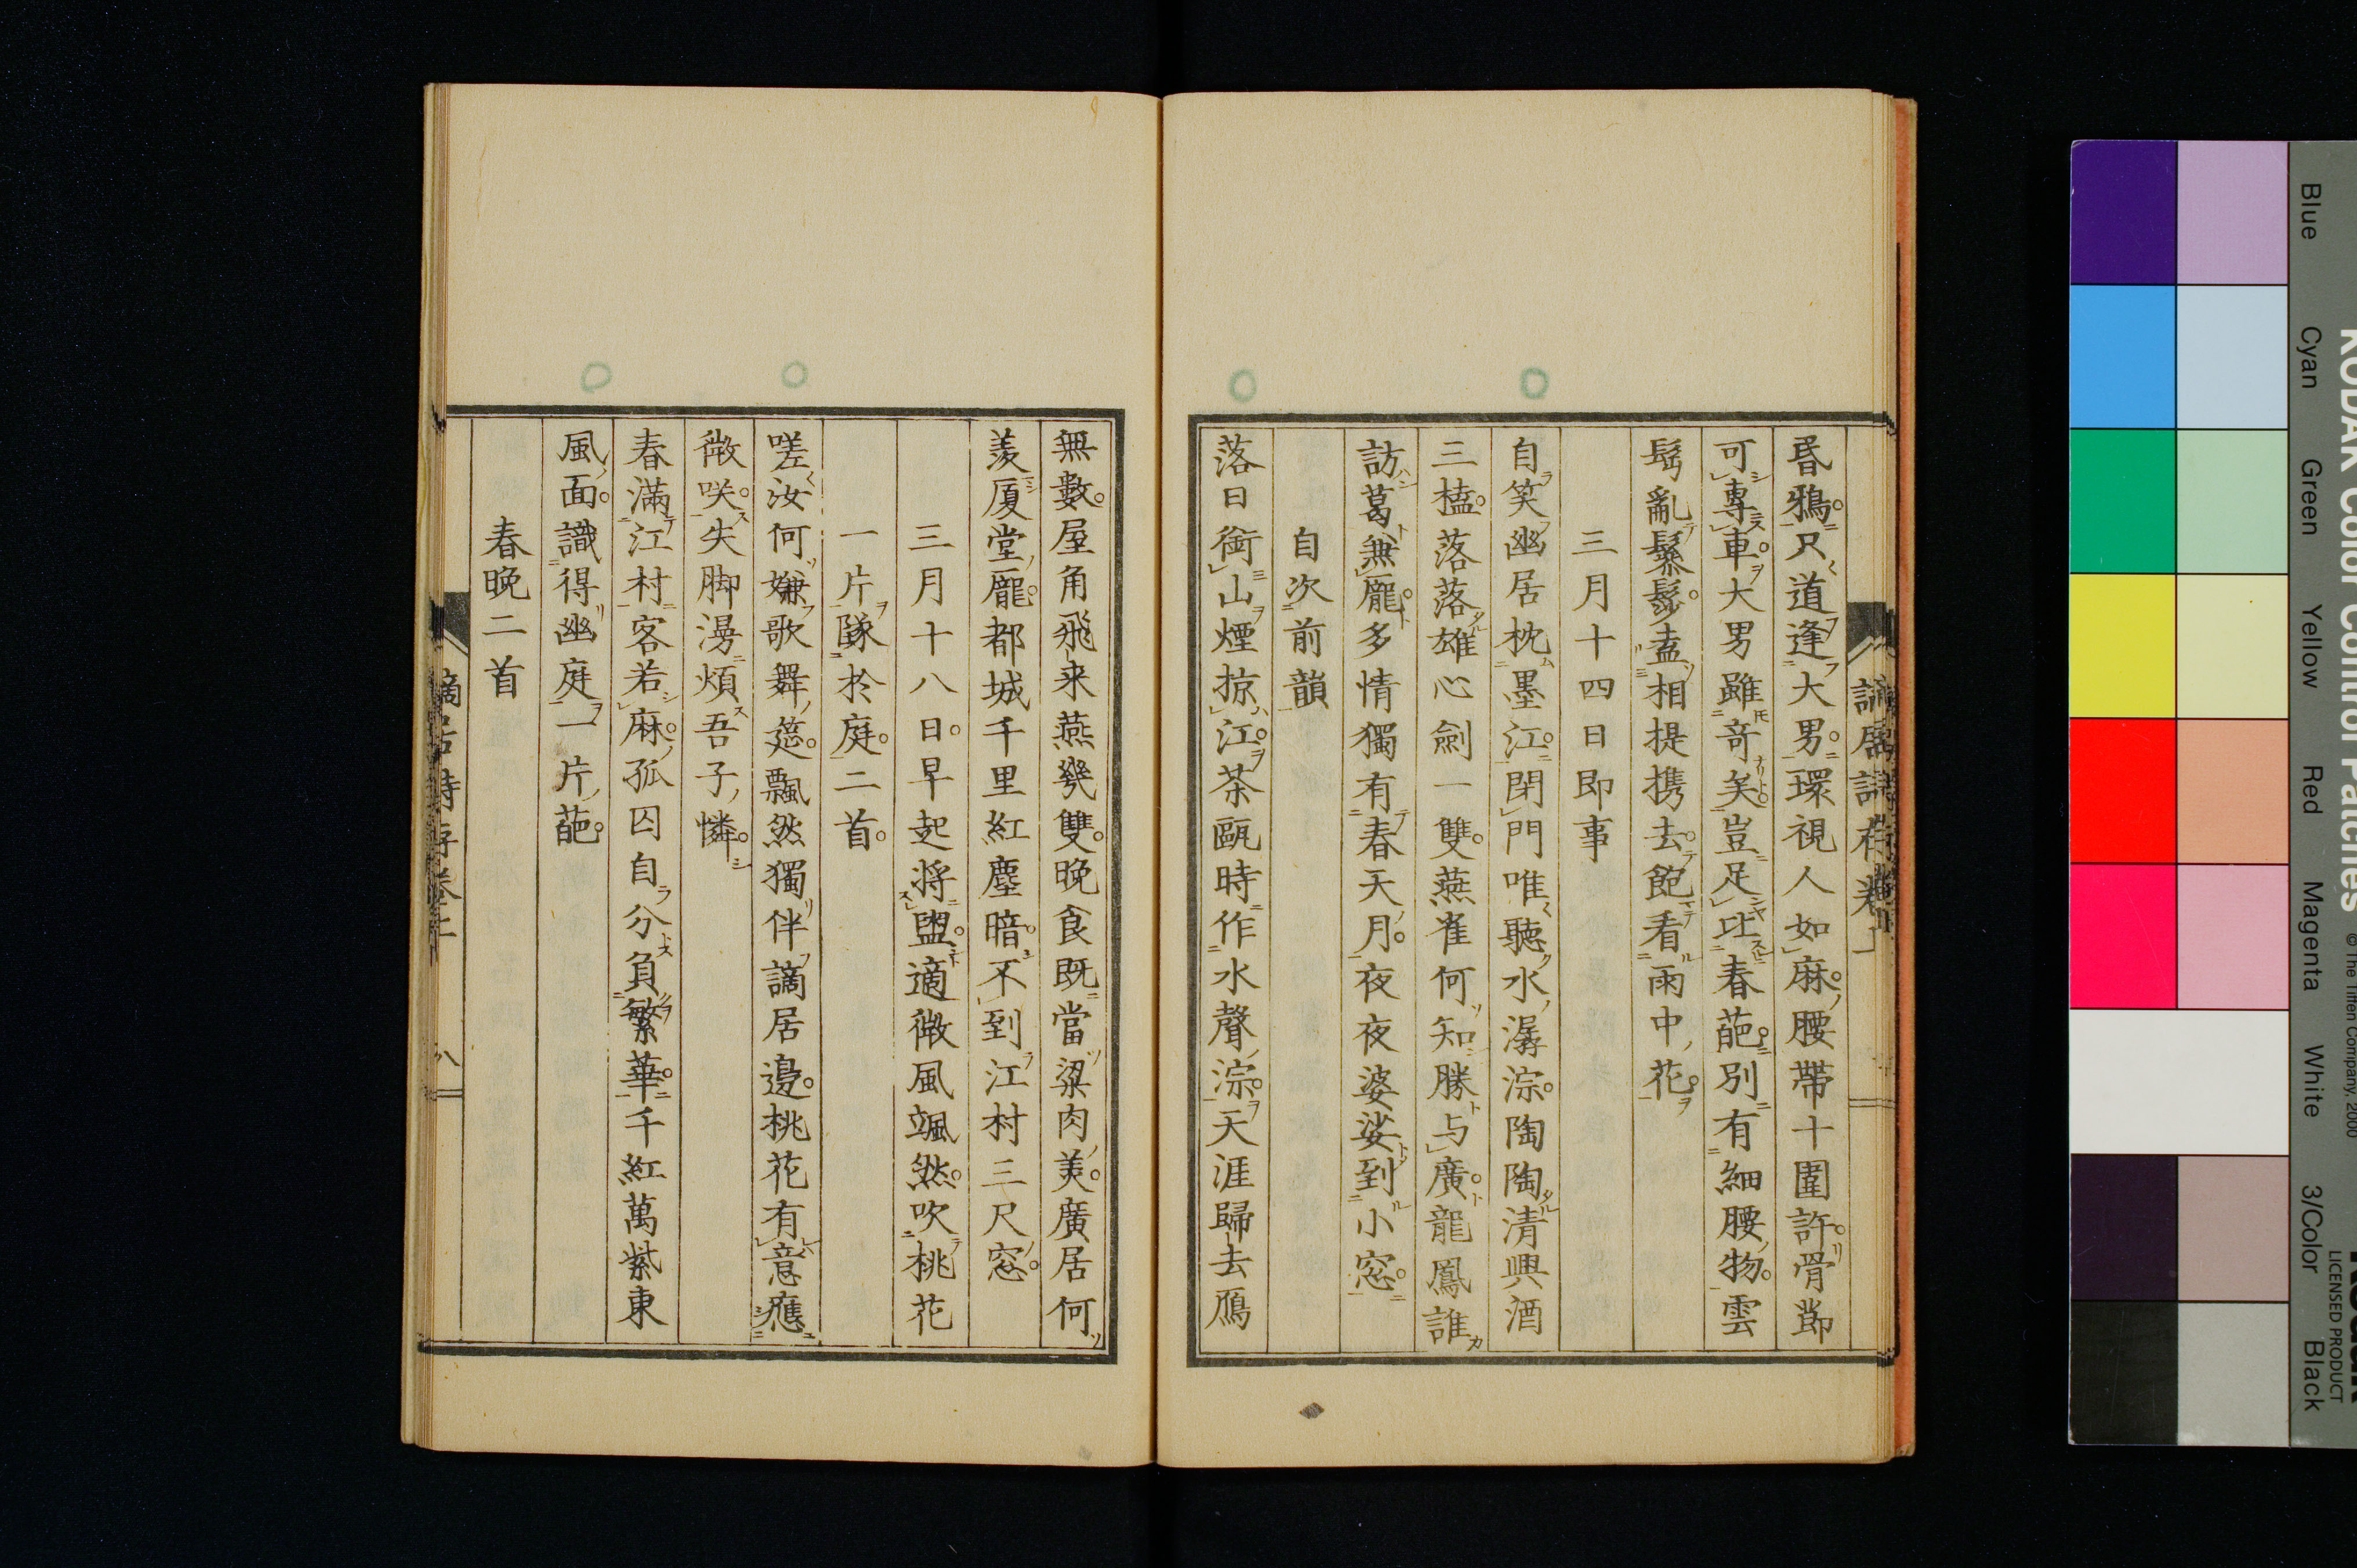 昏鴉。只道逢大男。環視人如麻。腰帶十圍許。骨節
可專車。大男雖奇矣。豈足比春葩。別有細腰物。雲
髷亂鬖髿。盍相提携去。飽看雨中花。
三月十四日即事
自笑幽居枕墨江。閉門唯聽水潺淙。陶陶清興酒
三榼。落落雄心劍一雙。燕雀何知勝与廣。龍鳳誰
訪葛無龐。多情獨有春天月。夜夜婆娑到小窓。
自次前韻
落日銜山煙掠江。茶甌時作水聲淙。天涯歸去鴈
無數。屋角飛来燕幾雙。晚食既當粱肉美。廣居何
羨厦堂龐。都城千里紅塵暗。不到江村三尺窓。
三月十八日。早起將盥。適微風颯然。吹桃花
一片。隊於庭。二首。
嗟汝何嫌歌舞筵。飄然獨伴謫居邊。桃花有意應
微咲。失脚漫煩吾子憐。
春滿江村客若麻。孤囚自分負繁華。千紅萬紫東
風面。識得幽庭一片葩。
春晚二首
謫居詩存卷上
八
KODAK Color Control Patches
© The Tiffen Company, 2000
Kodak
LICENSED PRODUCT
Blue
Cyan
Green
Yellow
Red
Magenta
White
3/Color
Black